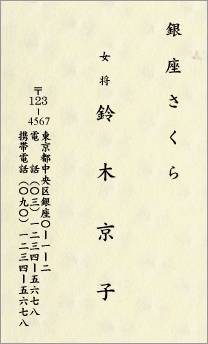 銀座さくら
女将 鈴木京子
〒123-4567
東京都中央区銀座〇-一-二
電話(〇三)一二三四-五六七八
携帯電話(〇九〇)一二三四-五六七八